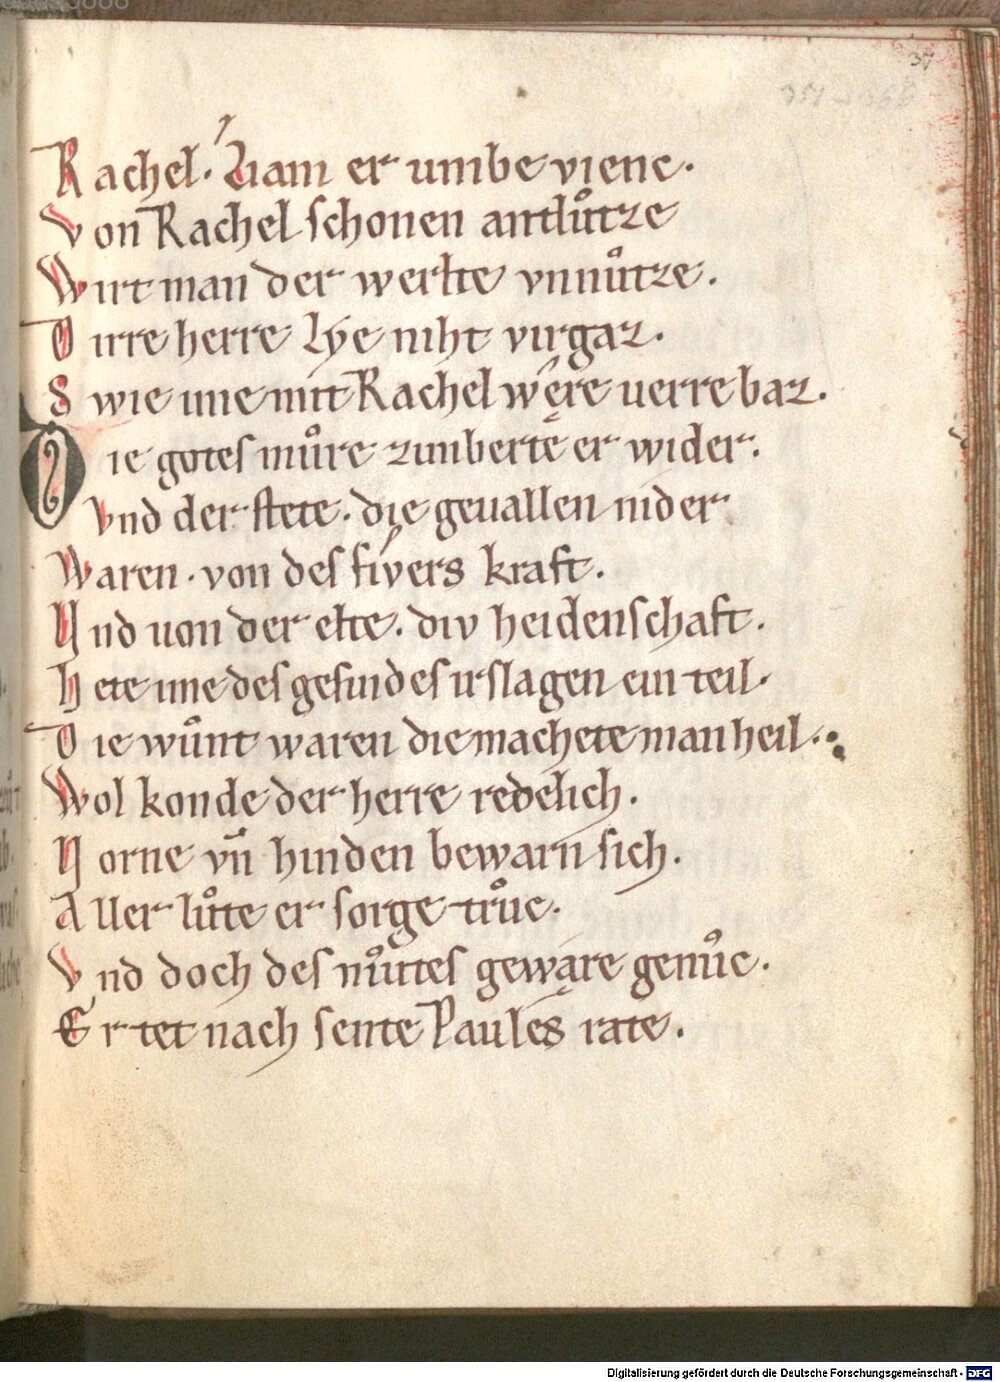 37
351 - 366
Rachel. Liam er umbe viene.
Von Rachel schonen antlůtze
Wirt man der werlte vnnůtze.
Dirre herre Lye niht virgaz.
Swie ime mit Rachel węre uerre baz.
Die gotes můre zimberte er wider.
Vnd der stete. die geuallen nider
Waren. von des fivers kraft.
Und uon der elte. div heidenschaft.
Hete ime des gesindes irslagen ein teil.
Die wůnt waren die machete man heil.
Wol konde der herre redelich.
Uorne vn̄ hinden bewarn sich.
Aller lůte er sorge trůc.
Vnd doch des můttes gewęre genůc.
Er tet nach sente Paules rate.
Digitalisierung gefördert durch die Deutsche Forschungsgemeinschaft - DFG